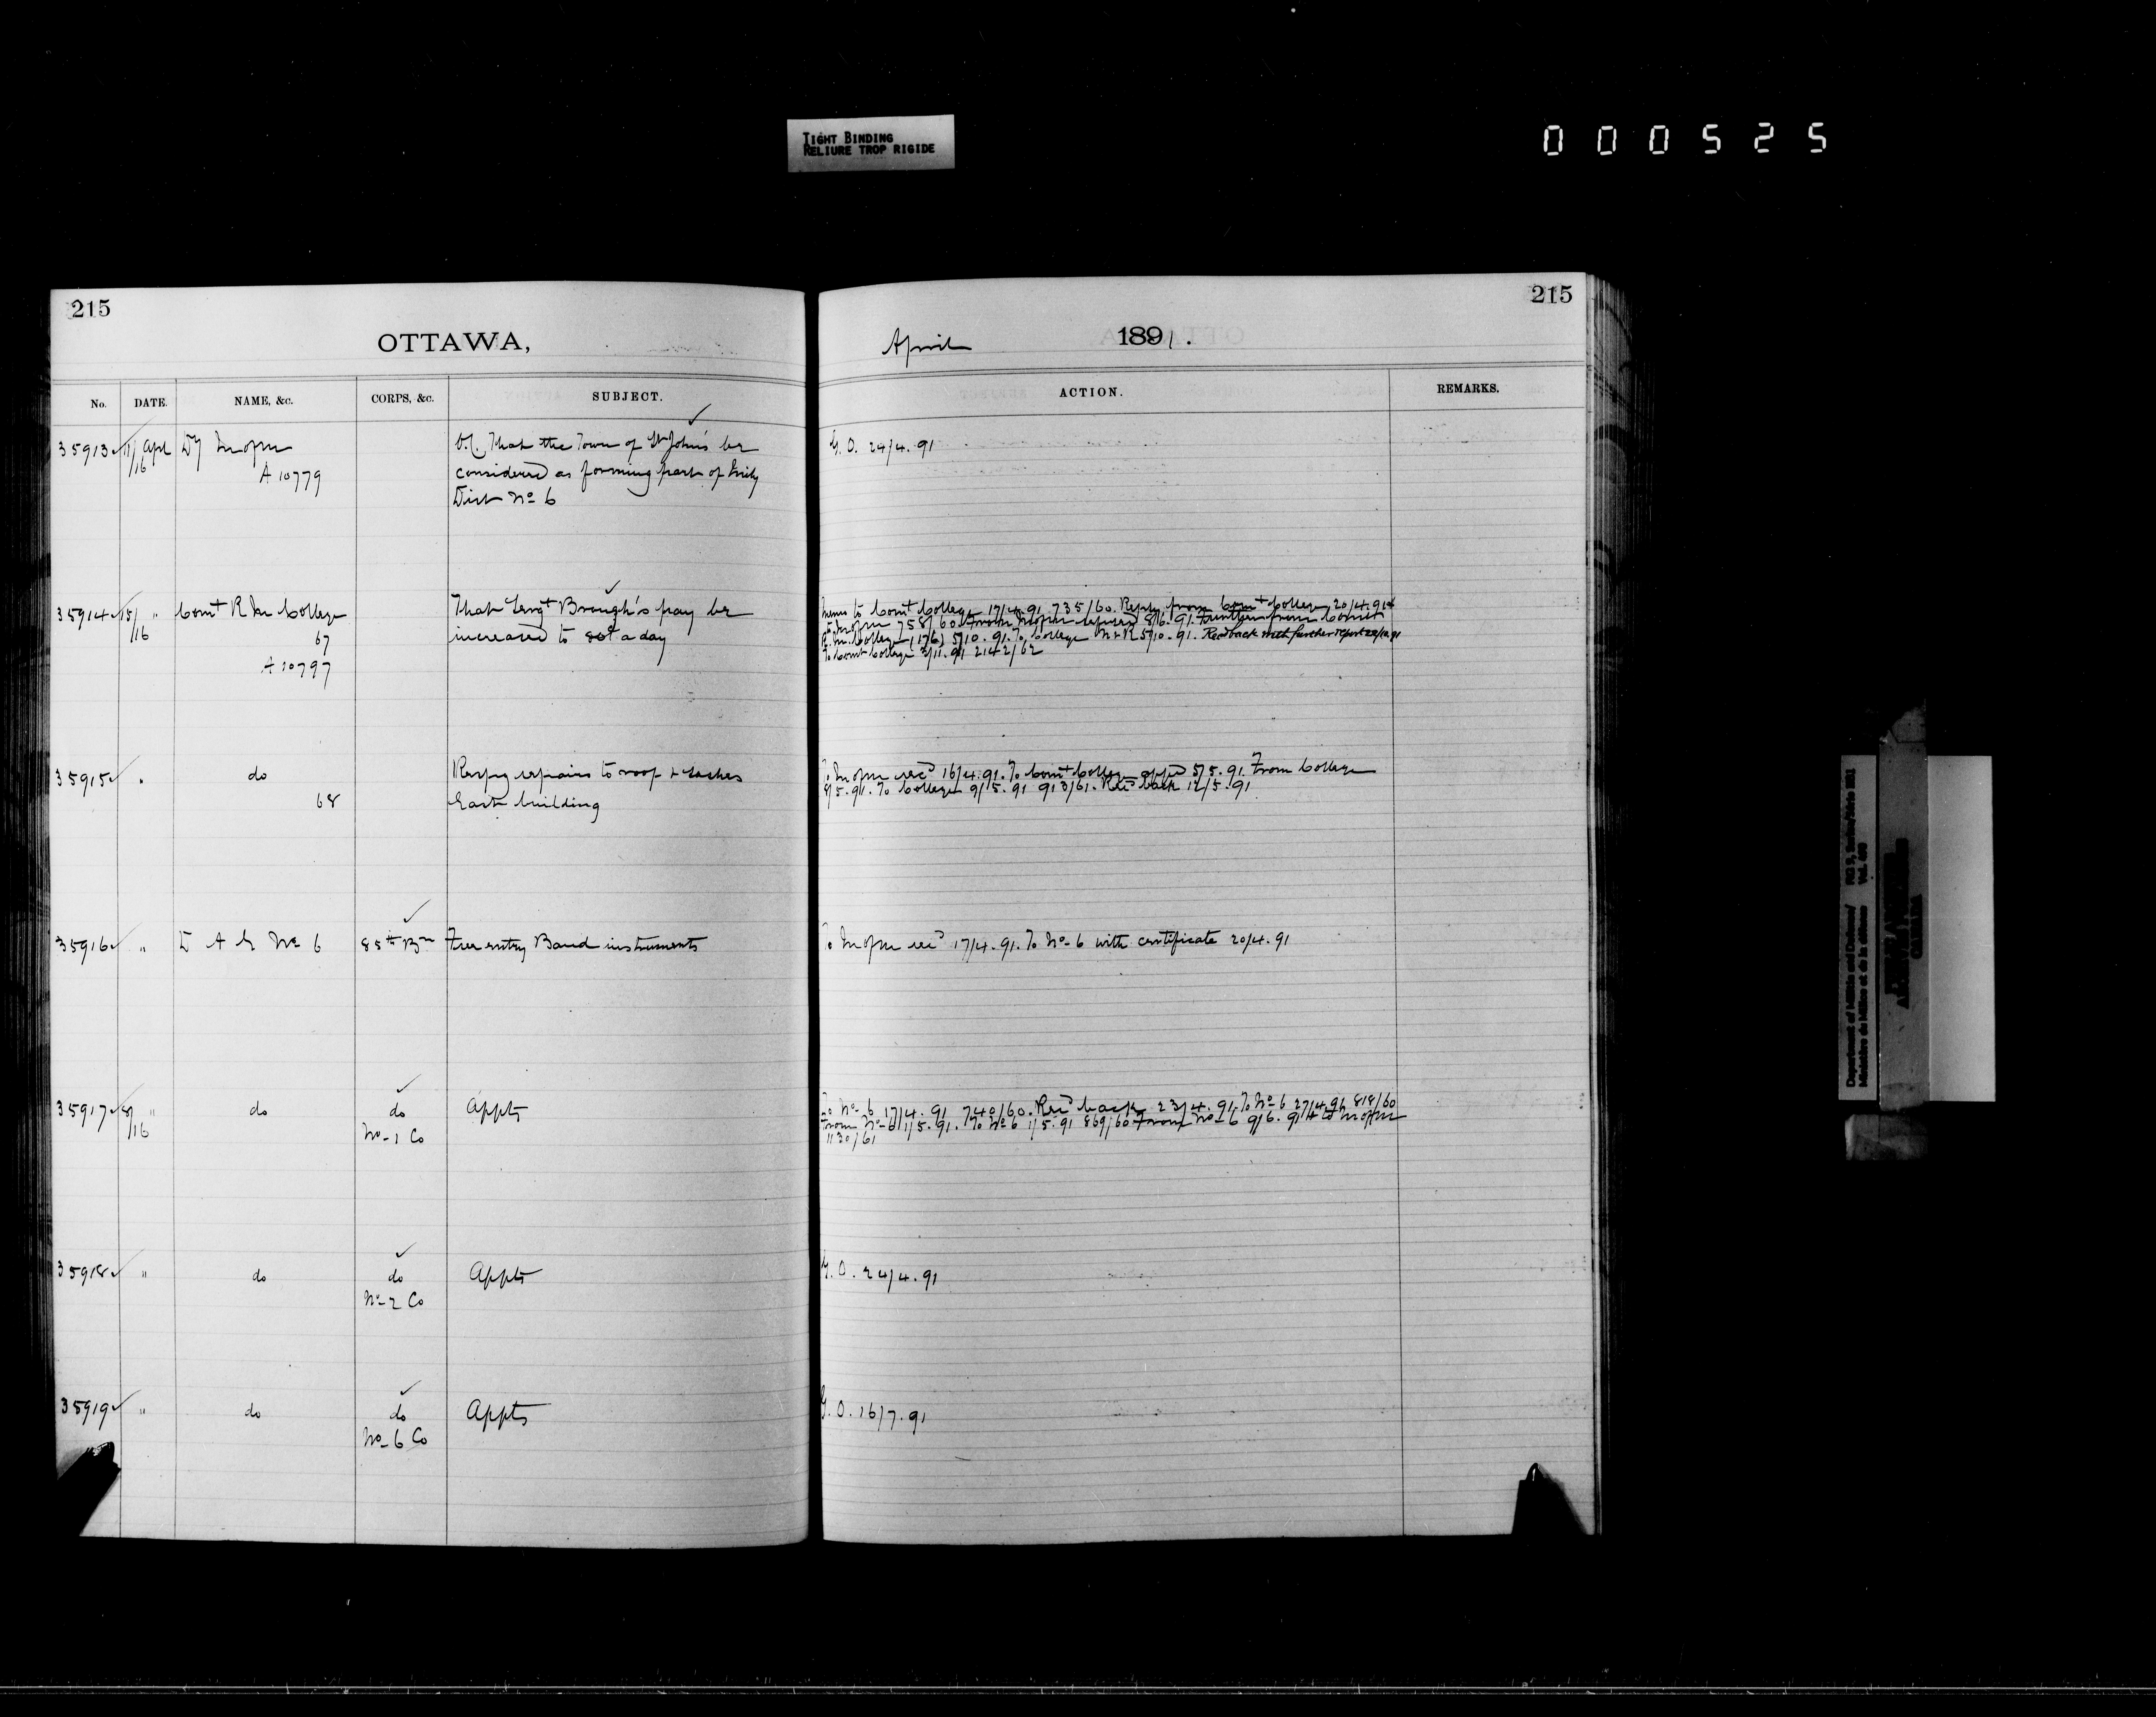 TIGHT BINDING
RELIURE TROP RIGIDE
000525
215
215
OTTAWA,
April 1891.
No. DATE. NAME, &c. CORPS, &c. SUBJECT. ACTION. REMARKS.
35913 11/16 Apl Dy M of M O.C. That the Town of St John's be G.O. 24/4.91
A 10779 considered as forming part of Mily
Dist No 6
35914 15/16 " Comt R M College That Sergt Brough's pay be Memo to Comt College 17/4.91 735/60. Reply from Comt College 20/4.91 &
67 increased to 80¢ a day to M of M 758/60. From M of M refused 8/6.91. Further from Comdt
A 10797 R.M. College (176) 5/10.91. To College M&R 5/10.91. Recd back with further report
To Comt College 3/11.91 2142/62
35915 " do Respg repairs to roof & sashes To M of M recd 16/4.91. To Comt College appd 5/5.91. From College
68 East building 8/5.91. To College 9/5.91 913/61. Recd back 12/5.91
35916 " D A G No 6 85th Bn Free entry Band instruments To M of M recd 17/4.91. To No 6 with certificate 20/4.91
35917 8/16 " do do Appts To No 6 17/4.91 740/60. Recd back 23/4.91. To No 6 27/4.91 818/60
No 1 Co From No 6 1/5.91. To No 6 1/5.91 869/60 From No 6 9/6.91 & to M of M
1130/61
35918 " do do Appts G.O. 24/4.91
No 2 Co
35919 " do do Appts G.O. 16/7.91
No 6 Co
Department of Militia and Defence/ RG 9,
Ministère de Milice et de la défense Vol.